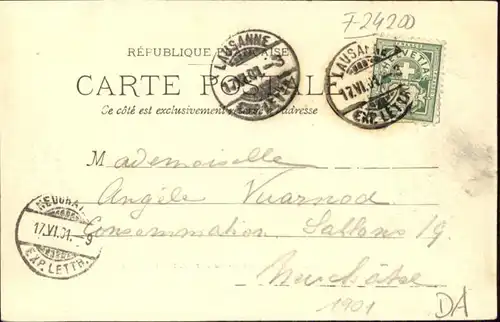 F-24200
RÉPUBLIQUE FRANÇAISE
CARTE POSTALE
Ce côté est exclusivement réservé à l'adresse
LAUSANNE
17.VI.01.-9
EXP. LETTR.
LAUSANNE
17.VI.01
EXP. LETTR.
HELVETIA
Mademoiselle
Angèle Vuarnod
Consommation Sablons 19
Neuchâtel
1901
NEUCHA
17.VI.01.-9
EXP. LETTR.
DA